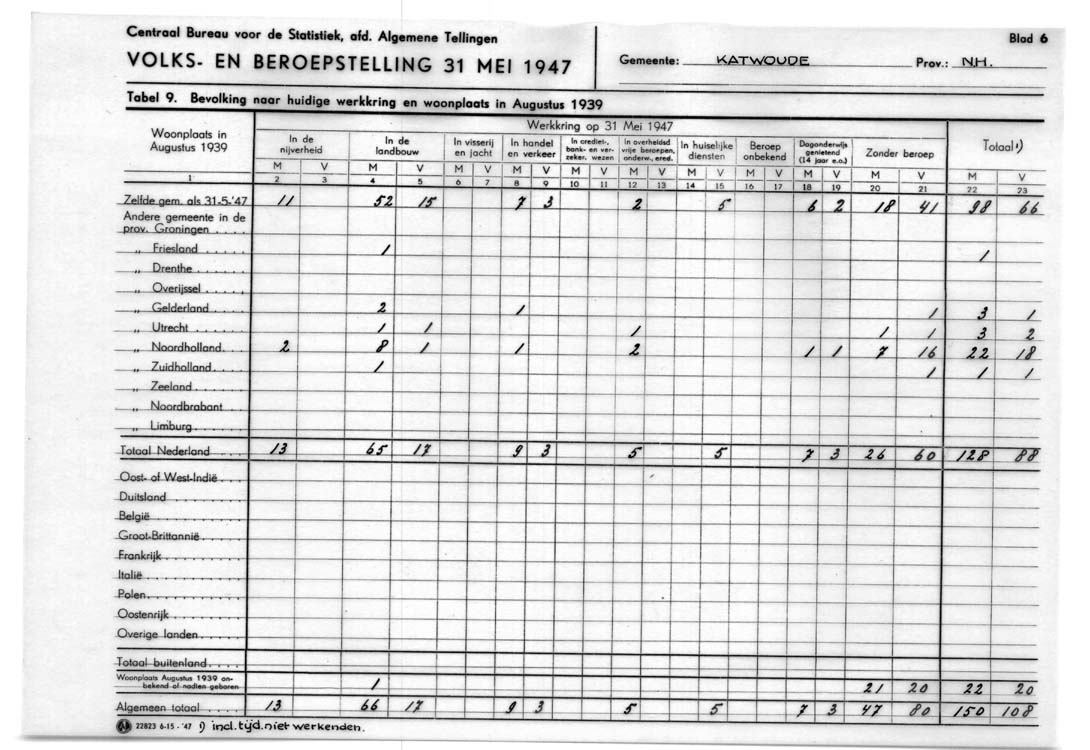 Centraal Bureau voor de Statistiek, afd. Algemene Tellingen
Blad 6
VOLKS- EN BEROEPSTELLING 31 MEI 1947
Gemeente: KATWOUDE Prov.: N.H.
Tabel 9. Bevolking naar huidige werkkring en woonplaats in Augustus 1939
Woonplaats in Augustus 1939
Werkkring op 31 Mei 1947
In de nijverheid
In de landbouw
In visserij en jacht
In handel en verkeer
In crediet-, bank- en verzeker. wezen
In overheidsd vrije beroepen, onderw., ered.
In huiselijke diensten
Beroep onbekend
Dagonderwijs genietend (14 jaar e.o.)
Zonder beroep
Totaal ¹)
M V M V M V M V M V M V M V M V M V M V M V
1 2 3 4 5 6 7 8 9 10 11 12 13 14 15 16 17 18 19 20 21 22 23
Zelfde gem. als 31-5-'47 11 52 15 7 3 2 5 6 2 18 41 98 66
Andere gemeente in de
prov. Groningen . . . .
„ Friesland . . . . . 1 1
„ Drenthe . . . . . .
„ Overijssel . . . . .
„ Gelderland . . . . 2 1 1 3 1
„ Utrecht . . . . . . 1 1 1 1 1 3 2
„ Noordholland. . . 2 8 1 1 2 1 1 7 16 22 18
„ Zuidholland. . . . 1 1 1 1
„ Zeeland . . . . . .
„ Noordbrabant . .
„ Limburg . . . . . .
Totaal Nederland . . . . 13 65 17 9 3 5 5 7 3 26 60 128 88
Oost- of West-Indië . . .
Duitsland . . . . . . . .
België . . . . . . . . . .
Groot-Brittannië. . . . .
Frankrijk . . . . . . . . .
Italië . . . . . . . . . . .
Polen . . . . . . . . . . .
Oostenrijk . . . . . . . .
Overige landen. . . . . .
Totaal buitenland. . . . .
Woonplaats Augustus 1939 on-
bekend of nadien geboren 1 21 20 22 20
Algemeen totaal . . . . 13 66 17 9 3 5 5 7 3 47 80 150 108
22823 6-15 - '47 1) incl. tijd. niet werkenden.